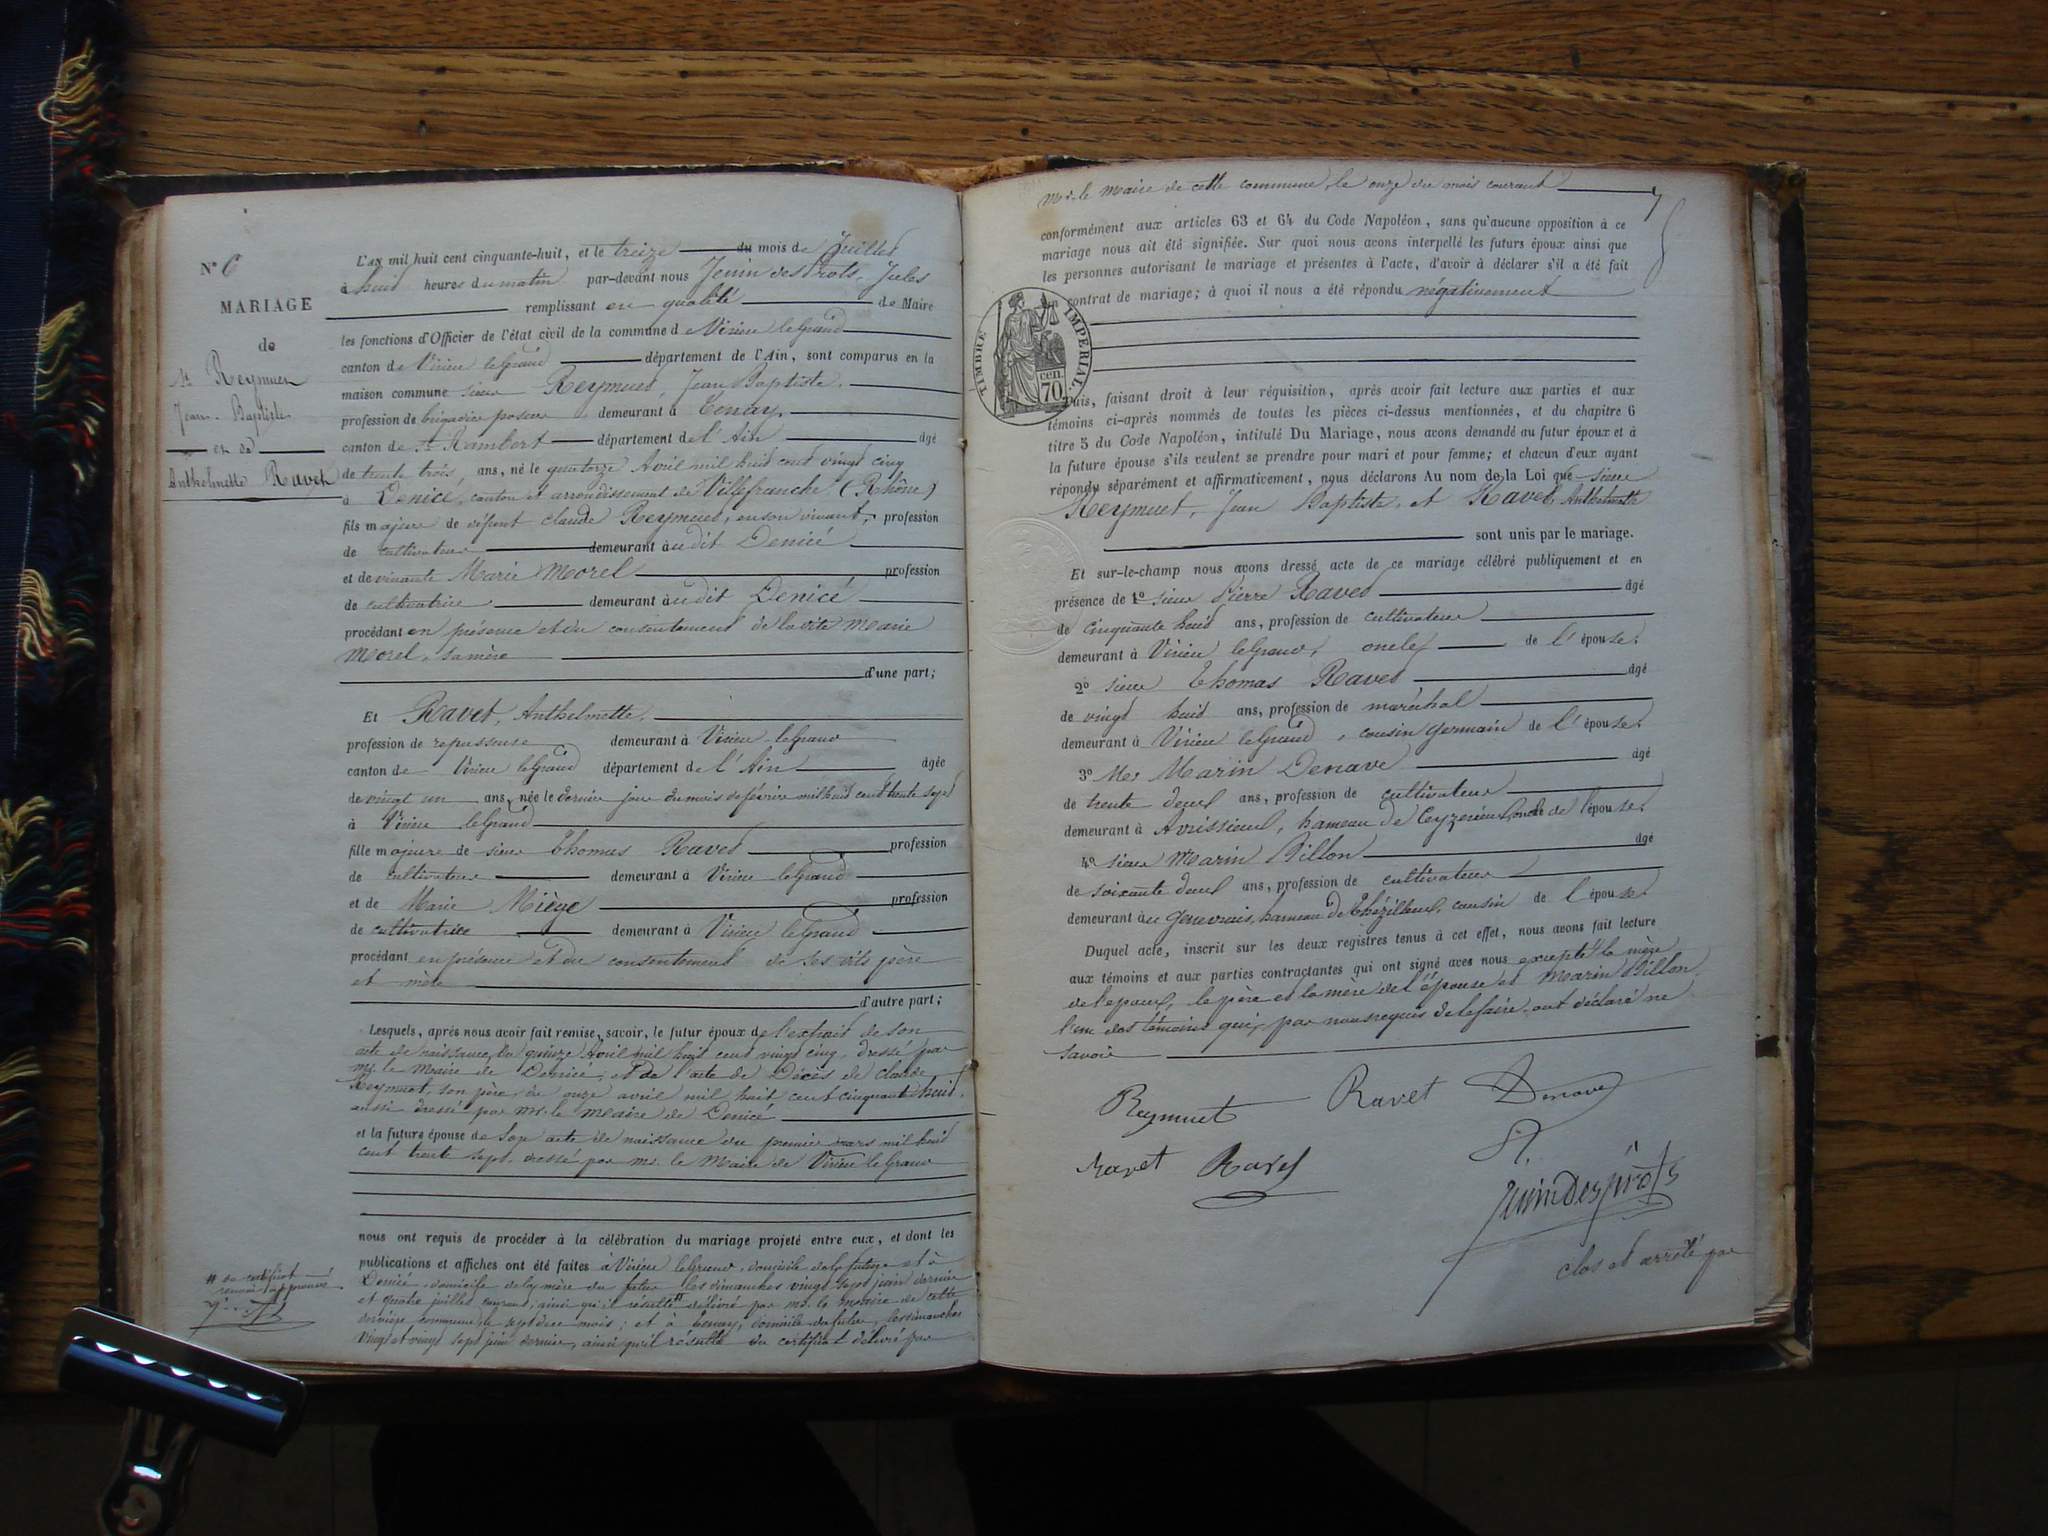 N° 6
MARIAGE
de
Sr Reymuet
Jean-Baptiste
et de
Anthelmette Ravet
L'AN mil huit cent cinquante-huit, et le treize du mois de Juillet
à huit heures du matin par-devant nous Jenin des Prots, Jules
remplissant en qualité de Maire
les fonctions d'Officier de l'état civil de la commune de Virieu le Grand
canton de Virieu le Grand département de l'Ain, sont comparus en la
maison commune sieur Reymuet, Jean Baptiste,
profession de brigadier poseur demeurant à Tenay,
canton de St Rambert département de l'Ain âgé
de trente trois, ans, né le quatorze Avril mil huit cent vingt cinq
à Denicé, canton et arrondissement de Villefranche (Rhône)
fils majeur de défunt Claude Reymuet, en son vivant, profession
de cultivateur demeurant audit Denicé
et de vivante Marie Morel profession
de cultivatrice demeurant audit Denicé
procédant en présence et du consentement de la dite Marie
Morel, sa mère
d'une part;
Et Ravet, Anthelmette,
profession de repasseuse demeurant à Virieu le Grand
canton de Virieu le Grand département de l'Ain âgée
de vingt un ans, née le dernier jour du mois de février mil huit cent trente sept
à Virieu le Grand
fille majeure de sieur Thomas Ravet profession
de cultivateur demeurant à Virieu le Grand
et de Marie Miège profession
de cultivatrice demeurant à Virieu le Grand
procédant en présence et du consentement de ses dits père
et mère
d'autre part;
Lesquels, après nous avoir fait remise, savoir, le futur époux de l'extrait de son
acte de naissance du quinze Avril mil huit cent vingt cinq, dressé par
Mr. le Maire de Denicé, et de l'acte de Décès de Claude
Reymuet, son père, du onze avril mil huit cent cinquante huit,
aussi dressé par Mr. le Maire de Denicé
et la future épouse de son acte de naissance du premier mars mil huit
cent trente sept, dressé par Mr. le Maire de Virieu le Grand
nous ont requis de procéder à la célébration du mariage projeté entre eux, et dont les
publications et affiches ont été faites à Virieu le Grand, domicile de la future et à
Denicé, domicile de la mère du futur les dimanches vingt sept juin dernier
et quatre juillet courant, ainsi qu'il résulte # délivré par Mr. le Maire de cette
dernière commune, le sept de ce mois; et à Tenay, domicile du futur, les dimanches
vingt et vingt sept juin dernier, ainsi qu'il résulte du certificat délivré par
# du certificat
renvoi approuvé
Mr. le Maire de cette commune, le onze du mois courant
7
conformément aux articles 63 et 64 du Code Napoléon, sans qu'aucune opposition à ce
mariage nous ait été signifiée. Sur quoi nous avons interpellé les futurs époux ainsi que
les personnes autorisant le mariage et présentes à l'acte, d'avoir à déclarer s'il a été fait
un contrat de mariage; à quoi il nous a été répondu négativement
TIMBRE IMPÉRIAL
70 cen.
Puis, faisant droit à leur réquisition, après avoir fait lecture aux parties et aux
témoins ci-après nommés de toutes les pièces ci-dessus mentionnées, et du chapitre 6
titre 5 du Code Napoléon, intitulé Du Mariage, nous avons demandé au futur époux et à
la future épouse s'ils veulent se prendre pour mari et pour femme; et chacun d'eux ayant
répondu séparément et affirmativement, nous déclarons Au nom de la Loi que sieur
Reymuet, Jean Baptiste, et Ravet, Anthelmette
sont unis par le mariage.
Et sur-le-champ nous avons dressé acte de ce mariage célébré publiquement et en
présence de 1° sieur Pierre Ravet âgé
de cinquante huit ans, profession de cultivateur
demeurant à Virieu le Grand, oncle de l'épouse.
2° sieur Thomas Ravet âgé
de vingt huit ans, profession de maréchal
demeurant à Virieu le Grand, cousin germain de l'épouse.
3° Mr Marin Denave âgé
de trente deux ans, profession de cultivateur
demeurant à Avrissieux, hameau de Ceyzérieux, oncle de l'épouse.
4° sieur Marin Billon âgé
de soixante deux ans, profession de cultivateur
demeurant au Genevrais, hameau de Thézillieux, cousin de l'épouse.
Duquel acte, inscrit sur les deux registres tenus à cet effet, nous avons fait lecture
aux témoins et aux parties contractantes qui ont signé avec nous excepté la mère
de l'époux, le père et la mère de l'épouse et Marin Billon,
l'un des témoins qui, par nous requis de le faire, ont déclaré ne
savoir
Reymuet Ravet Denave
Ravet Ravet
Jenin des prots
Clos et arrêté par